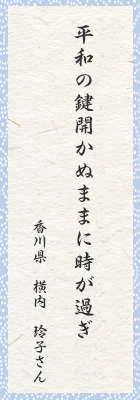 平和の鍵開かぬままに時が過ぎ
香川県 横内 玲子さん